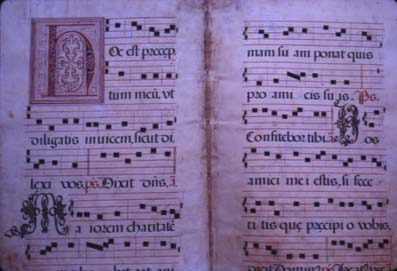 Hoc est precep
tum meū, vt
diligatis inuicem, sicut di
lexi vos. ps. Dixit dñs. ā
Maiorem charitatē
nemo habet
mam suam ponat quis
pro amicis suis. Ps.
Confitebor tibi. ā Vos
amici mei estis, si fece
ritis que precipio vobis,
dicit Dominus. ps.